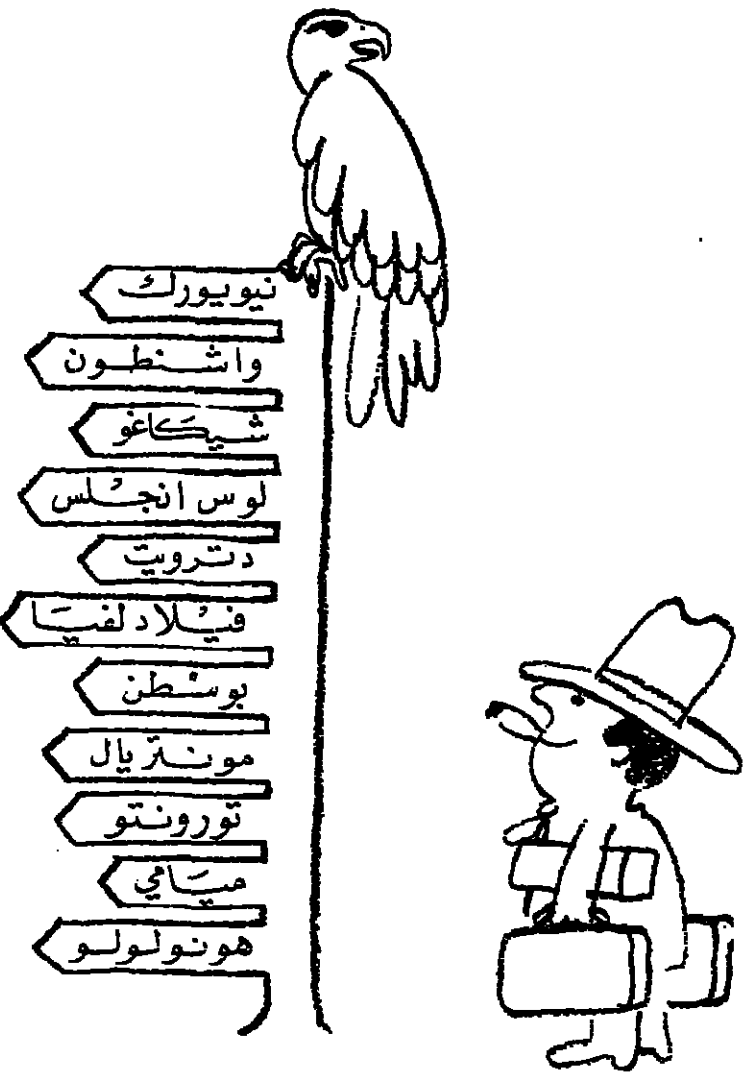 نيويورك
واشنطون
شيكَاغو
لوس انجْلس
دترويت
فيْلادلفيَا
بوسْطن
مونتريال
تورونتو
ميَامي
هونولولو